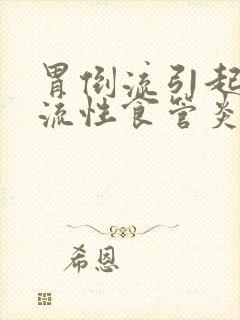 胃倒流引起
流性食管炎
希恩